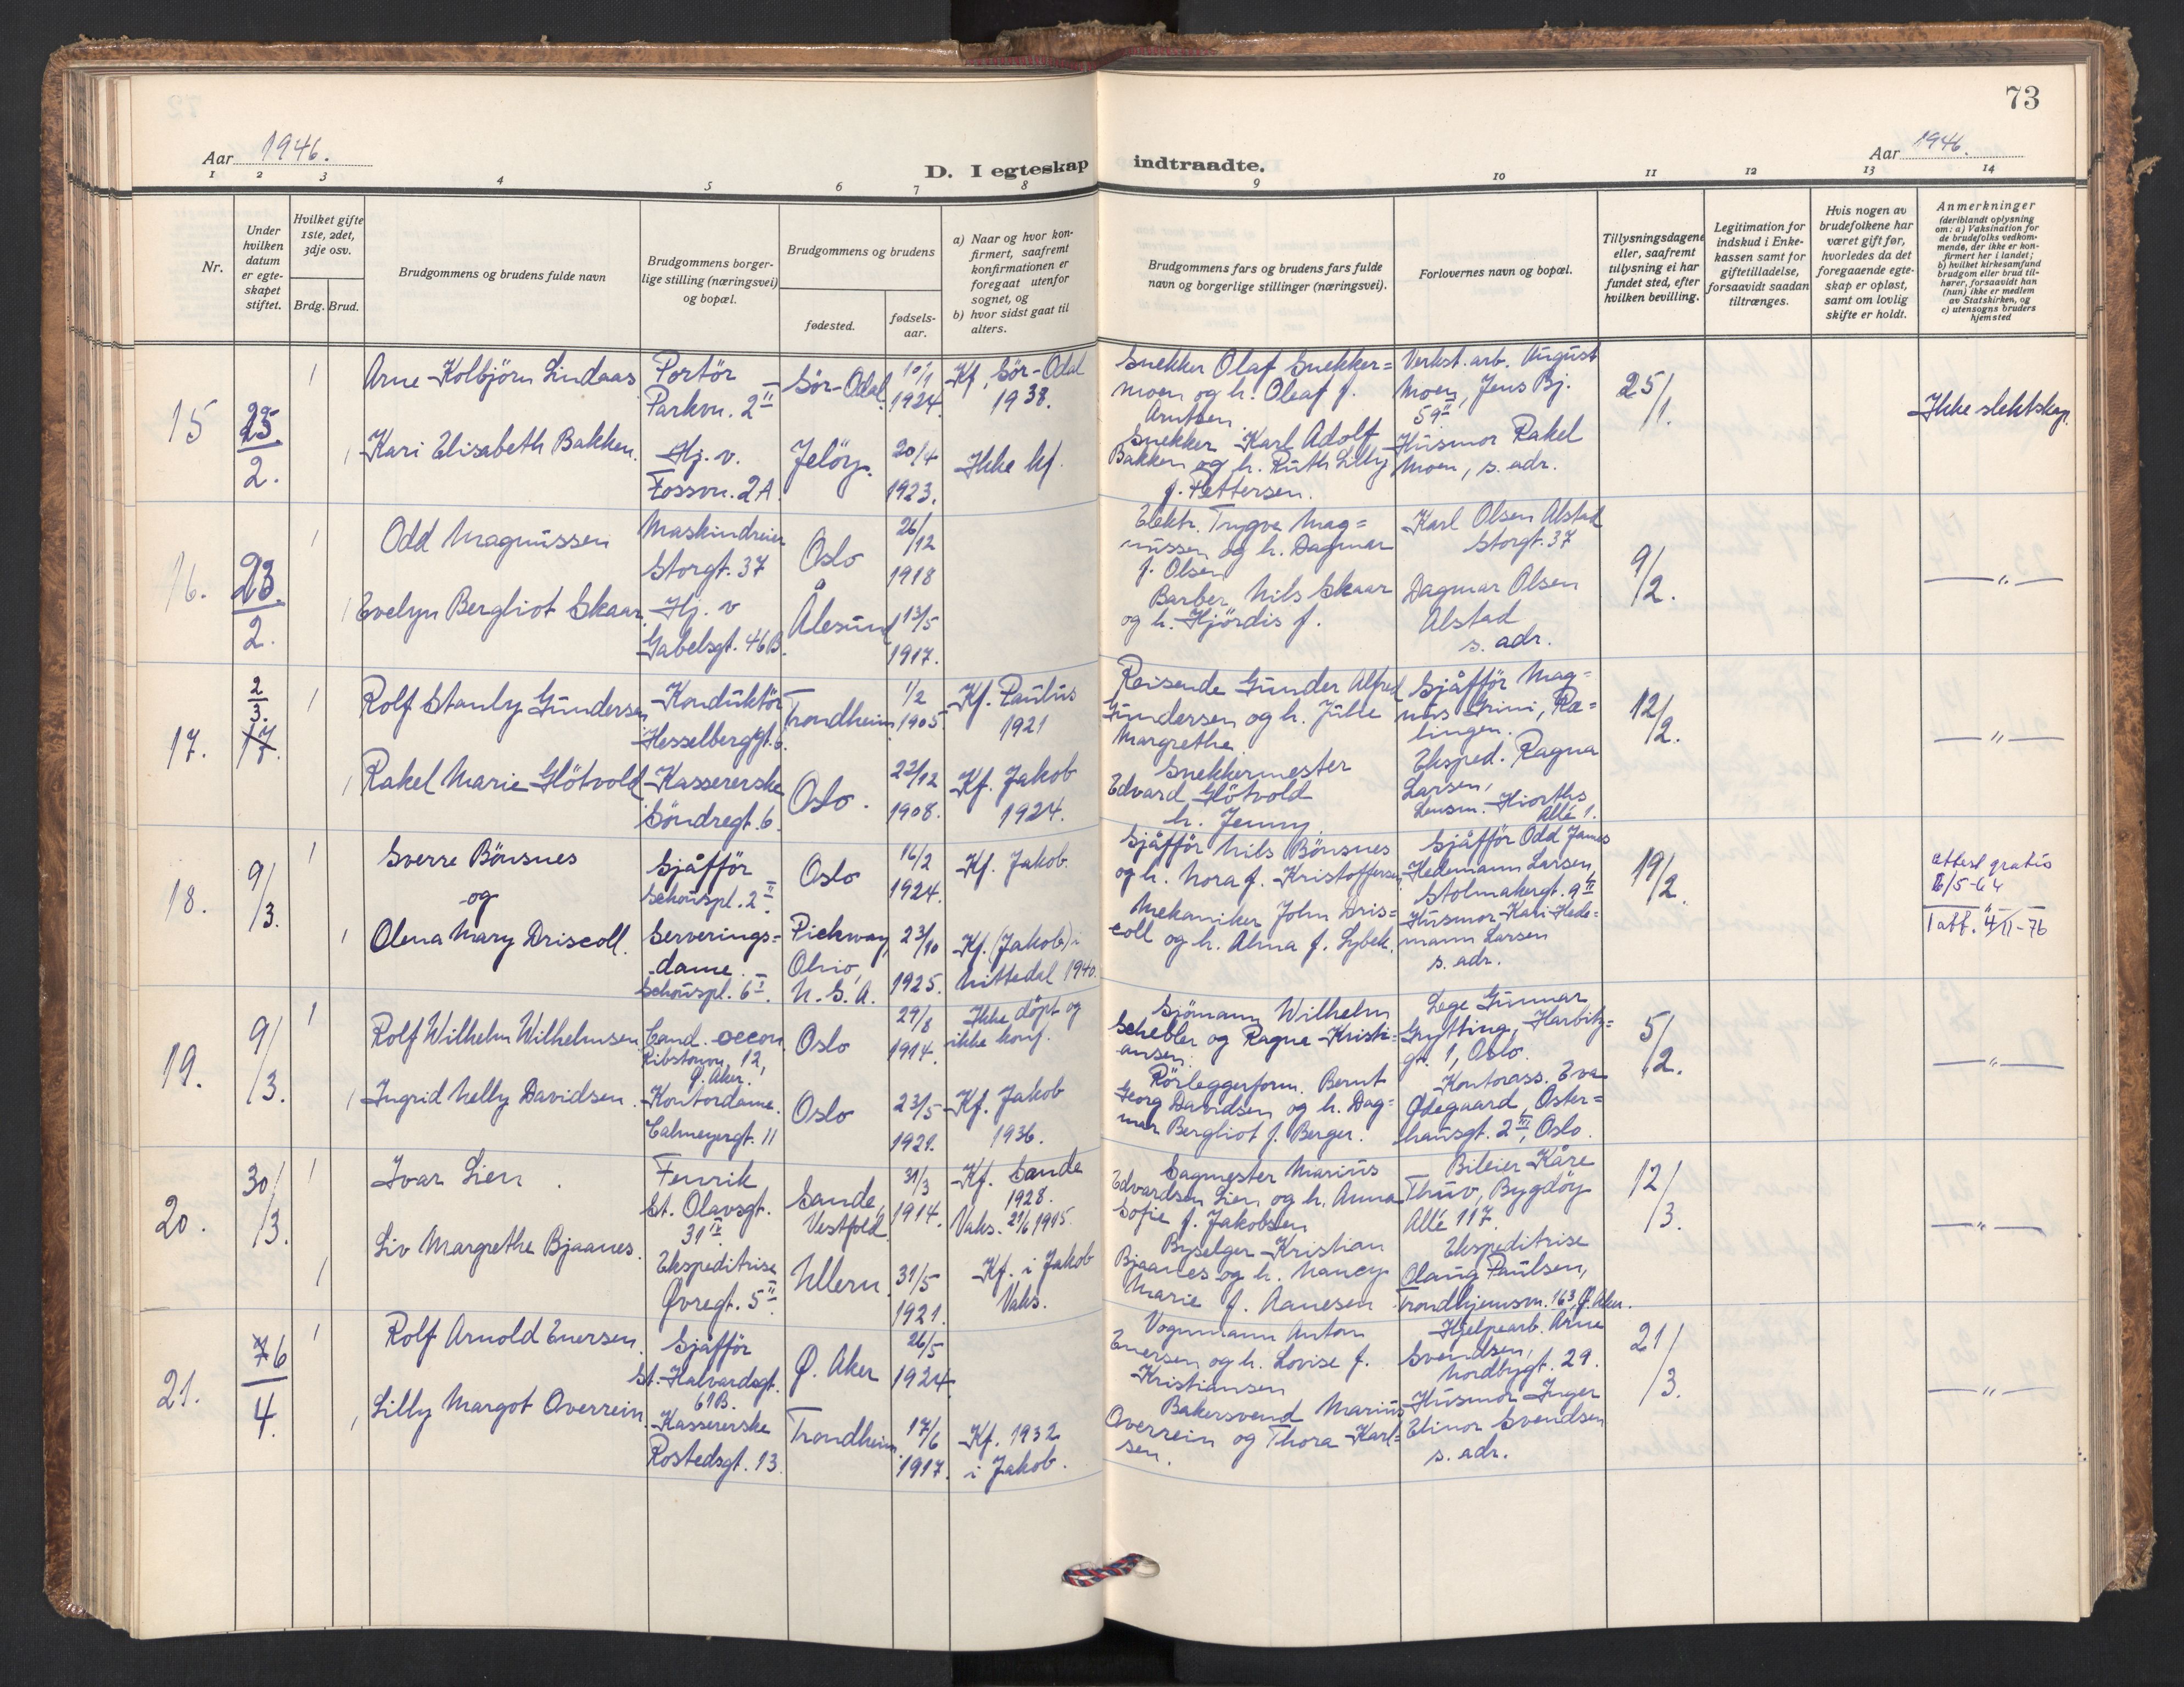 73
Aar 1946.
D. I egteskap indtraadte.
Aar 1946.
1 2 3 4 5 6 7 8 9 10 11 12 13 14
Nr.
Under
hvilken
datum
er egte-
skapet
stiftet.
Hvilket gifte
1ste, 2det,
3dje osv.
Brdg. Brud.
Brudgommens og brudens fulde navn
Brudgommens borger-
lige stilling (næringsvei)
og bopæl.
Brudgommens og brudens
fødested.
fødsels-
aar.
a) Naar og hvor kon-
firmert, saafremt
konfirmationen er
foregaat utenfor
sognet, og
b) hvor sidst gaat til
alters.
Brudgommens fars og brudens fars fulde
navn og borgerlige stillinger (næringsvei).
Forlovernes navn og bopæl.
Tillysningsdagene
eller, saafremt
tillysning ei har
fundet sted, efter
hvilken bevilling.
Legitimation for
indskud i Enke-
kassen samt for
giftetilladelse,
forsaavidt saadan
tiltrænges.
Hvis nogen av
brudefolkene har
været gift før,
hvorledes da det
foregaaende egte-
skap er opløst,
samt om lovlig
skifte er holdt.
Anmerkninger
(deriblandt oplysning
om: a) Vaksination for
de brudefolks vedkom-
mende, der ikke er kon-
firmert her i landet;
b) hvilket kirkesamfund
brudgom eller brud til-
hører, forsaavidt han
(hun) ikke er medlem
av Statskirken, og
c) utensogns bruders
hjemsted
15
25
2.
1
Arne Kolbjörn Lindaas
Portör
Parkvn. 2 II
Sör-Odal
10/1
1924.
Kf. Sör-Odal
1938.
1
Kari Elisabeth Bakken.
Hj. v.
Fossvn. 2A
Jelöy.
20/4
1923.
Ikke kf.
Snekker Olaf Snekker=
moen og h. Oleaf f.
Arntsen.
Snekker Karl Adolf
Bakken og h. Ruth Lilly
f. Pettersen.
Verkst. arb. August
Moen, Jens Bj.
59 II
Husmor Rakel
Moen, s. adr.
25/1.
Ikke slektskap.
16.
23.
2.
1
Odd Magnussen
Maskindreier
Storgt. 37
Oslo
26/12
1918
1
Evelyn Bergliot Skaar
Hj. v
Gabelsgt. 46B.
Ålesund
13/5
1917.
Elektr. Trygve Mag=
nussen og h. Dagmar
f. Olsen
Barber Nils Skaar
og h. Hjördis f.
Karl Olsen Alstad
Storgt. 37
Dagmar Olsen
Alstad
s. adr.
9/2.
— " —
17.
2
3.
17.
1
Rolf Stanly Gundersen
Konduktör
Hesselberggt. 6.
Trondheim
1/2
1905
Kf. Paulus
1921
1
Rakel Marie Glötvold
Kassererske
Söndregt. 6.
Oslo.
22/12
1908.
Kf. Jakob
1924.
Reisende Gunder Alfred
Gundersen og h. Julie
Margrethe.
Snekkermester
Edvard Glötvold
h. Jenny.
Sjåfför Mag=
nus Grini, Ræ=
lingen.
Eksped. Ragna
Larsen,
Lensm. Hiorths
Allé 1.
12/2.
— " —
18.
9/3.
1
Sverre Bönsnes
og
Sjåfför
Schouspl. 2 II
Oslo
16/2
1924.
Kf. Jakob.
1
Olena Mary Driscoll.
Serverings=
dame.
Schouspl. 6 I.
Pickway,
Ohio,
U.S.A.
23/10
1925.
Kf. (Jakob) i
Nittedal 1940.
Sjåfför Nils Bönsnes
og h. Nora f. Kristoffersen
Mekaniker John Dris=
coll og h. Alma f. Lybek.
Sjåfför Odd James
Hedemann Larsen,
Stolmakergt. 9 II
Husmor Kari Hede=
mann Larsen
s. adr.
19/2.
attest gratis
16/5-64
1 att. 4/11-76
19.
9/3.
1
Rolf Wilhelm Wilhelmsen
Cand. oecon.
Ribstonvn. 12,
Ø. Aker.
Oslo
29/8
1914.
Ikke döpt og
ikke konf.
1
Ingrid Nelly Davidsen.
Kontordame.
Calmeyergt. 11
Oslo
23/5
1921.
Kf. Jakob
1936.
Sjömann Wilhelm
Schebler og Ragna Kristi=
ansen.
Rörleggerform. Bernt
Georg Davidsen og h. Dag=
mar Bergliot f. Berger.
Lege Gunnar
Grytting, Harbitz=
gt. 1, Oslo.
Kontorass. Eva
Ødegaard, Öster=
hausgt. 2 III, Oslo.
5/2.
— " —
20.
30/3.
1
Ivar Lien.
Fenrik
St. Olavsgt.
31 IV.
Sande,
Vestfold.
31/3
1914.
Kf. Sande
1928.
Vaks. 21/6 1915.
1
Liv Margrethe Bjaanes.
Ekspeditrise
Øvregt. 5 II.
Ullern
31/5
1921.
Kf. i Jakob
Vaks.
Sagmester Marius
Edvardsen Lien og h. Anna
Sofie f. Jakobsen
Byselger Kristian
Bjaanes og h. Nancy
Marie f. Aanesen
Bileier Kåre
Thuv, Bygdöy
Allé 117.
Ekspeditrise
Olaug Paulsen,
Trondhjemsvn. 163, Ø. Aker.
12/3.
— " —
21.
76
4.
1
Rolf Arnold Enersen.
Sjåfför
St. Halvardsgt.
61B.
Ø. Aker
26/5
1924.
1
Lilly Margot Overrein.
Kassererske
Rostedsgt. 13.
Trondheim.
17/6
1917.
Kf. 1932
i Jakob.
Vognmann Anton
Enersen og h. Lovise f.
Kristiansen
Bakersvend Marius
Overrein og Thora Karl=
sen.
Hjelpearb. Arne
Svendsen,
Nordbygt. 29.
Husmor Inger
Elinor Svendsen
s. adr.
21/3.
— " —